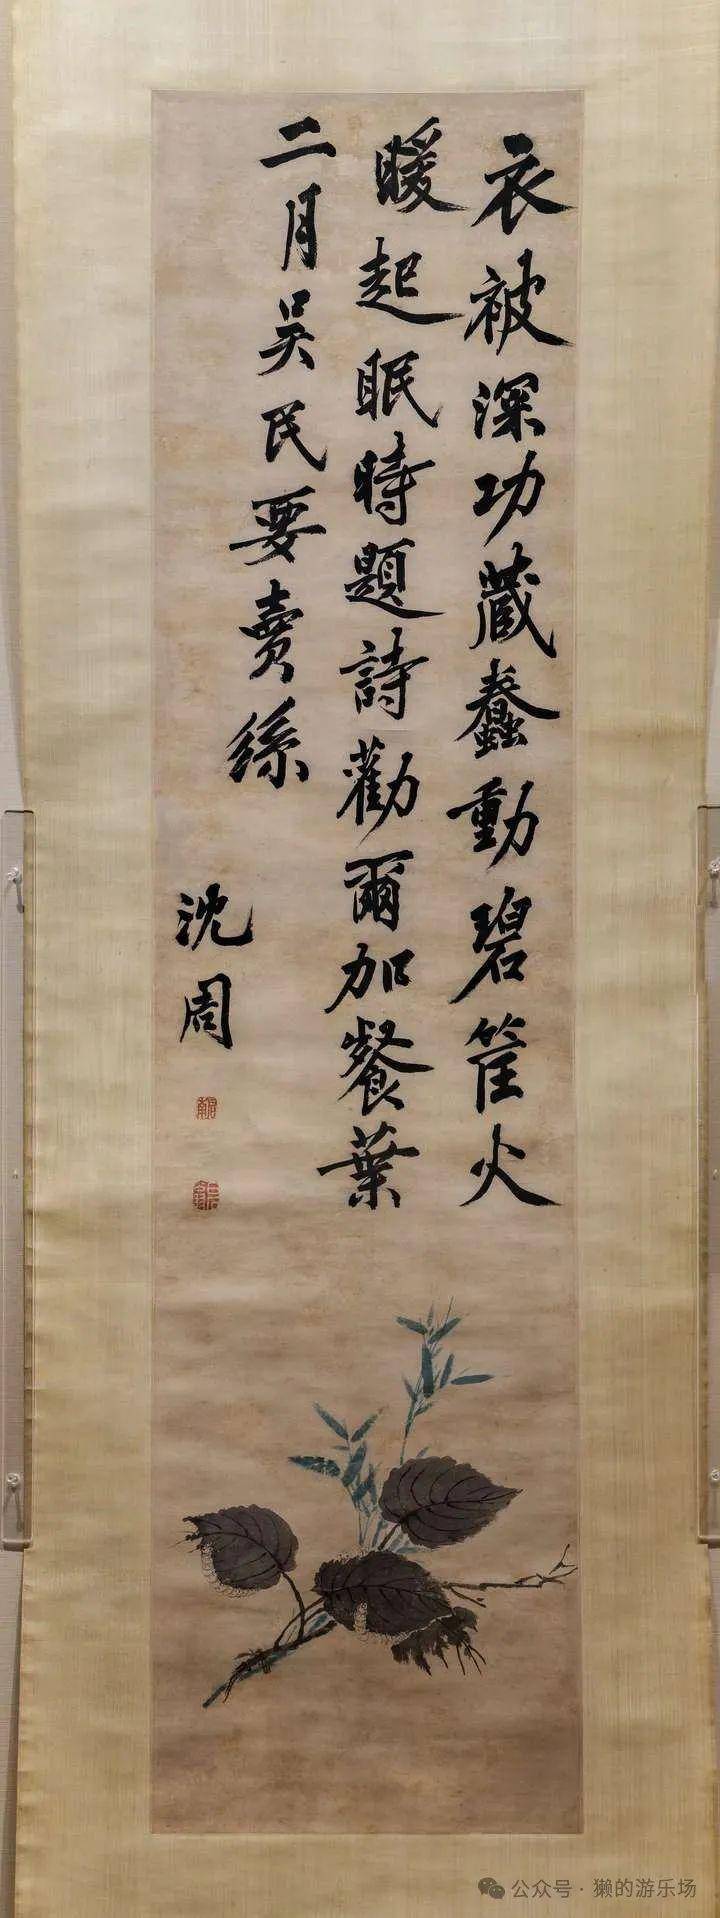 衣被深功藏蠢動碧筐火
暖起眠時題詩勸爾加餐葉
二月吳民要賣絲
沈周
公众号 · 獭的游乐场